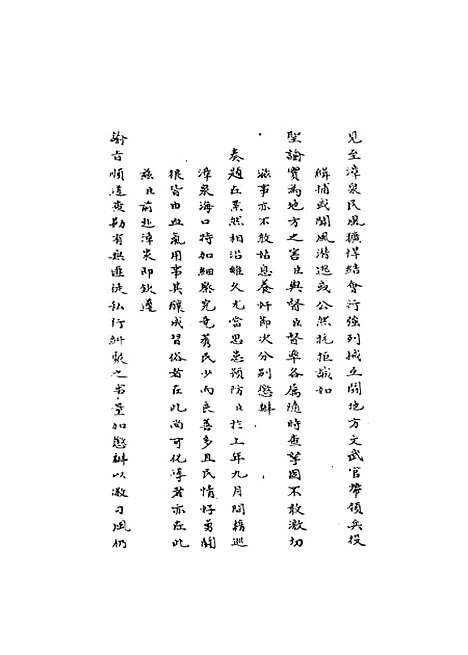 見至漳泉民風獷悍結會行強列械互鬪地方文武官帶領兵役
緝捕或聞風潛逃或公然抗拒誠如
聖諭實為地方之害臣與督臣督率各屬隨時查拏固不敢激切
滋事亦不敢姑息養奸節次分別懲辦
奏題在案然相沿雖久尤當思患預防臣於上年九月間藉巡
漳泉海口特加細察究竟莠民少而良善多且民情好勇鬪
狠皆由血氣用事其釀成習俗者在此尚可化導者亦在此
茲臣前赴漳泉即欽遵
諭旨順道查勘有無匪徒私行糾聚之書量加懲辦以激刁風仍